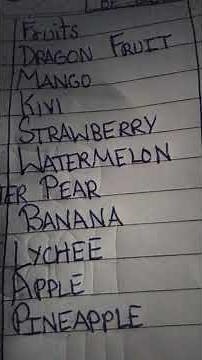 Fruits
DRAGON FRUIT
MANGO
KIVI
STRAWBERRY
WATERMELON
TER PEAR
BANANA
LYCHEE
APPLE
PINEAPPLE